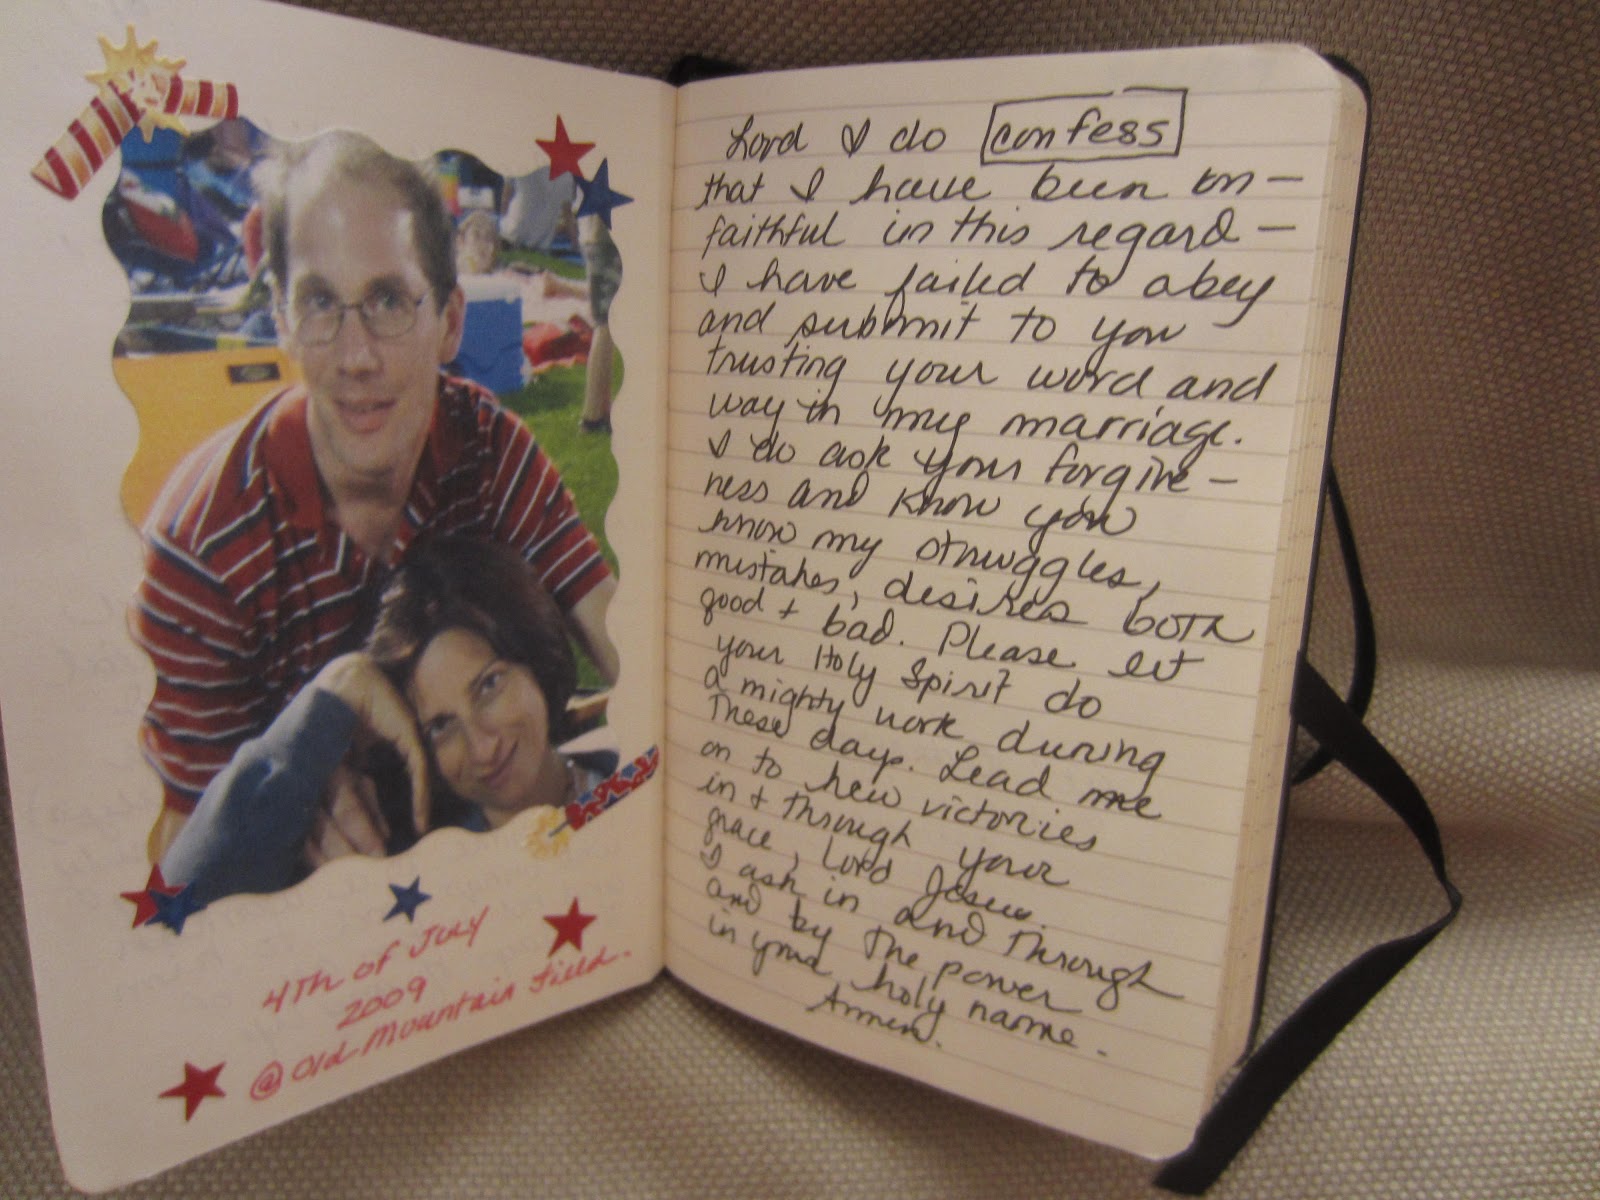 4TH OF JULY
2009
@ Old Mountain Field.
Lord I do confess
that I have been un-
faithful in this regard -
I have failed to obey
and submit to you
trusting your word and
way in my marriage.
I do ask your forgive-
ness and know you
know my struggles,
mistakes, desires both
good + bad. Please let
your Holy Spirit do
a mighty work during
These days. Lead me
on to new victories
in + through your
grace, Lord Jesus.
I ask in and through
and by the power
in your holy name.
Amen.